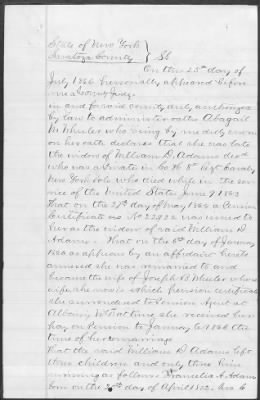 State of New York
Saratoga County } SS.
On this 25th day of
July 1866 personally appeared before
me a County Judge
in and for said County duly authorized
by law to administer oaths Abagail
M. Wheeler who being by me duly sworn
on her oath declares that she was late
the widow of William D. Adams decd
who was a Private in Co. H. 8th Regt Cavalry
New York Vols who died while in the ser-
vice of the United States June 9 1863
That on the 27th day of May 1864 a Pension
Certificate No 22922 was issued to
her as the widow of said William D
Adams. That on the 6th day of January
1866 as appears by an affidavit hereto
annexed she was remarried to and
became the wife of Joseph B. Wheeler whose
wife she now is which pension certificate
she surrendered to Pension Agent at
Albany at that time she received her
pay on Pension to January 6 1866 the
time of her remarriage
That the said William D Adams left
three children and only three him
surviving as follows A. Adams
born on the day of April 1852.